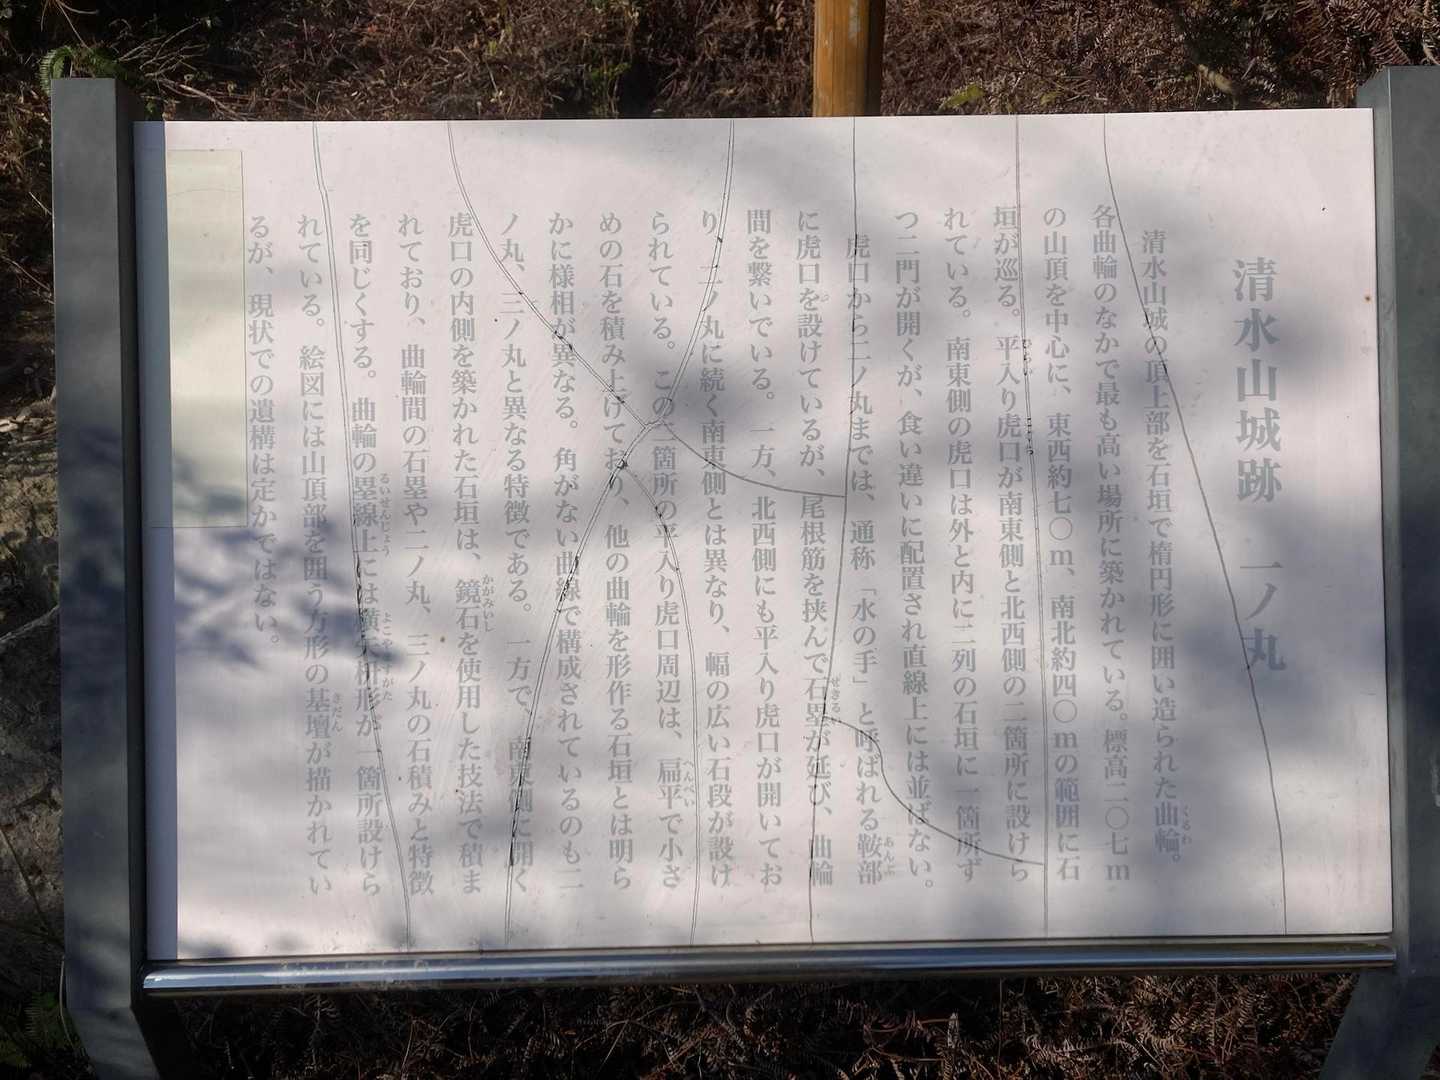 清水山城跡　一ノ丸
清水山城の頂上部を石垣で楕円形に囲い造られた曲輪。
各曲輪のなかで最も高い場所に築かれている。標高二〇七ｍ
の山頂を中心に、東西約七〇ｍ、南北約四〇ｍの範囲に石
垣が巡る。平入り虎口が南東側と北西側の二箇所に設けら
れている。南東側の虎口は外と内に二列の石垣に一箇所ず
つ二門が開くが、食い違いに配置され直線上には並ばない。
虎口から二ノ丸までは、通称「水の手」と呼ばれる鞍部
に虎口を設けているが、尾根筋を挟んで石塁が延び、曲輪
間を繋いでいる。一方、北西側にも平入り虎口が開いてお
り、二ノ丸に続く南東側とは異なり、幅の広い石段が設け
られている。この二箇所の平入り虎口周辺は、扁平で小さ
めの石を積み上げており、他の曲輪を形作る石垣とは明ら
かに様相が異なる。角がない曲線で構成されているのも二
ノ丸、三ノ丸と異なる特徴である。一方で、南東側に開く
虎口の内側を築かれた石垣は、鏡石を使用した技法で積ま
れており、曲輪間の石塁や二ノ丸、三ノ丸の石積みと特徴
を同じくする。曲輪の塁線上には横矢枡形が一箇所設けら
れている。絵図には山頂部を囲う方形の基壇が描かれてい
るが、現状での遺構は定かではない。